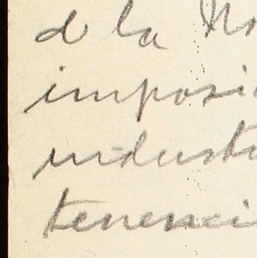 d la No
imposi
industr
tenenci